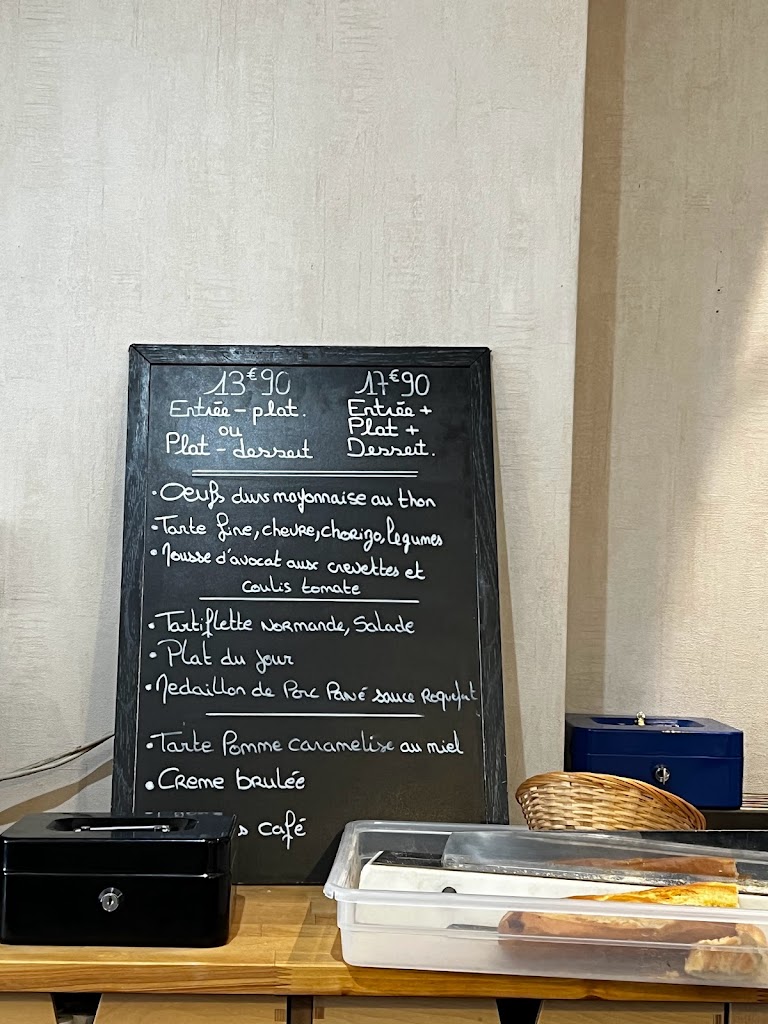 13€90 17€90
Entrée - plat. Entrée +
ou Plat +
Plat - dessert Dessert.
• Oeufs durs mayonnaise au thon
• Tarte fine, chevre, chorizo, légumes
• Mousse d'avocat aux crevettes et
coulis tomate
• Tartiflette Normande, Salade
• Plat du jour
• Medaillon de Porc Pané sauce Roquefort
• Tarte Pomme caramelise au miel
• Creme brulée
s café